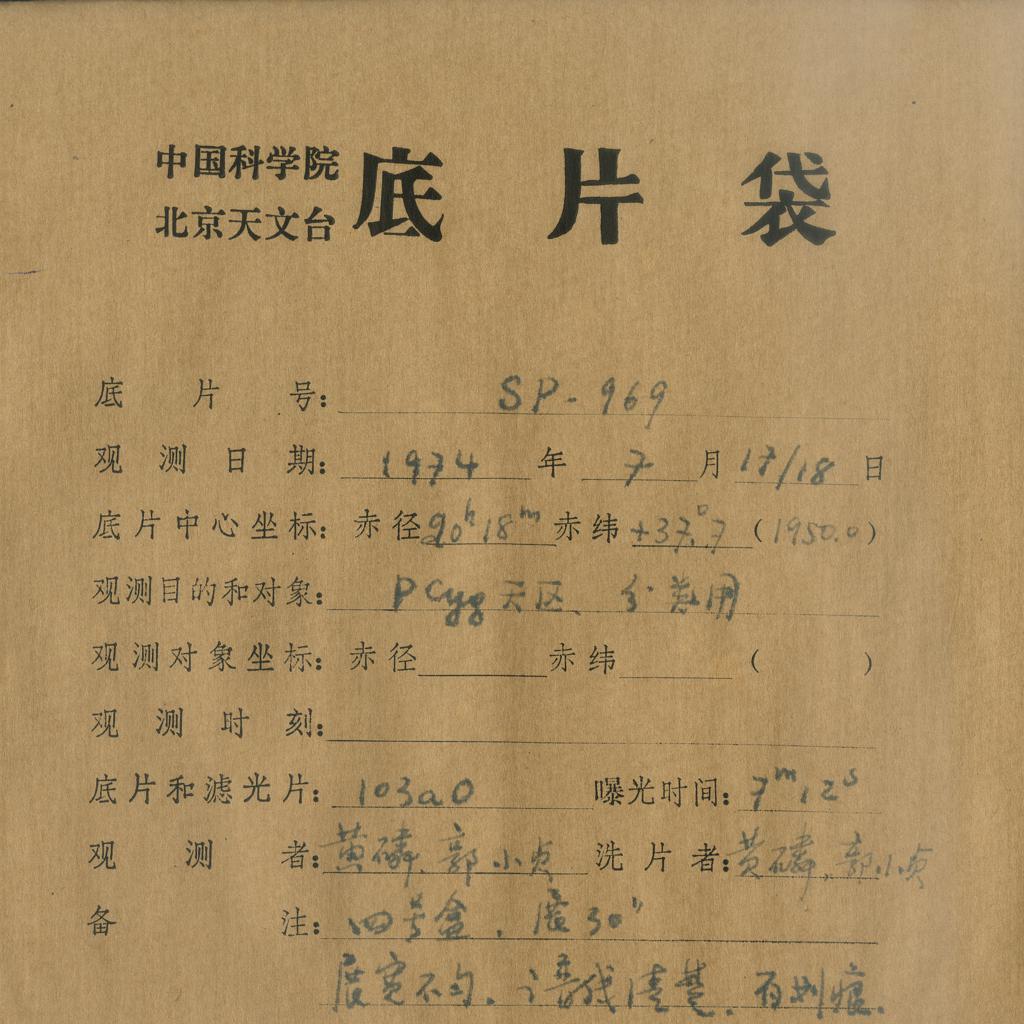 中国科学院
北京天文台
底片袋
底片号: SP-969
观测日期: 1974年7月17/18日
底片中心坐标: 赤径20h18m赤纬+37°.7(1950.0)
观测目的和对象: P Cyg天区、分类用
观测对象坐标: 赤径 赤纬 ( )
观测时刻:
底片和滤光片: 103aO 曝光时间: 7m12s
观测者: 黄磷、郭小贞 洗片者: 黄磷、郭小贞
备注: 四号盒, 展30"
展宽不匀, 谱线清楚, 有划痕.